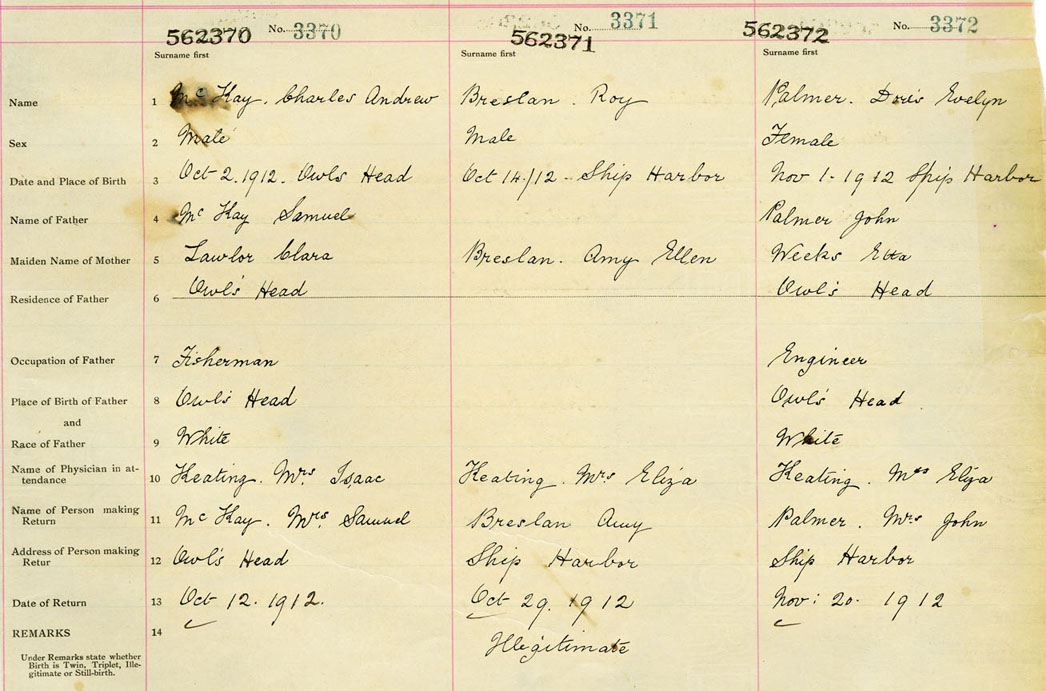 562370 No. 3370 562371 No. 3371 562372 No. 3372
Surname first Surname first Surname first
Name 1 Mc Kay. Charles Andrew Breslan. Roy Palmer. Doris Evelyn
Sex 2 Male Male Female
Date and Place of Birth 3 Oct 2. 1912. Owls Head Oct 14/12 - Ship Harbor Nov 1 - 1912 Ship Harbor
Name of Father 4 Mc Kay Samuel Palmer John
Maiden Name of Mother 5 Lawlor Clara Breslan. Amy Ellen Weeks Etta
Residence of Father 6 Owl's Head Owl's Head
Occupation of Father 7 Fisherman Engineer
Place of Birth of Father 8 Owl's Head Owl's Head
and
Race of Father 9 White White
Name of Physician in at-
tendance 10 Keating. Mrs. Isaac Keating. Mrs Eliza Keating. Mrs Eliza
Name of Person making
Return 11 Mc Kay. Mrs. Samuel Breslan Amy Palmer. Mrs John
Address of Person making
Retur 12 Owl's Head Ship Harbor Ship Harbor
Date of Return 13 Oct 12. 1912. Oct 29. 1912 Nov: 20. 1912
REMARKS 14 Illegitimate
Under Remarks state whether
Birth is Twin, Triplet, Ille-
gitimate or Still-birth.